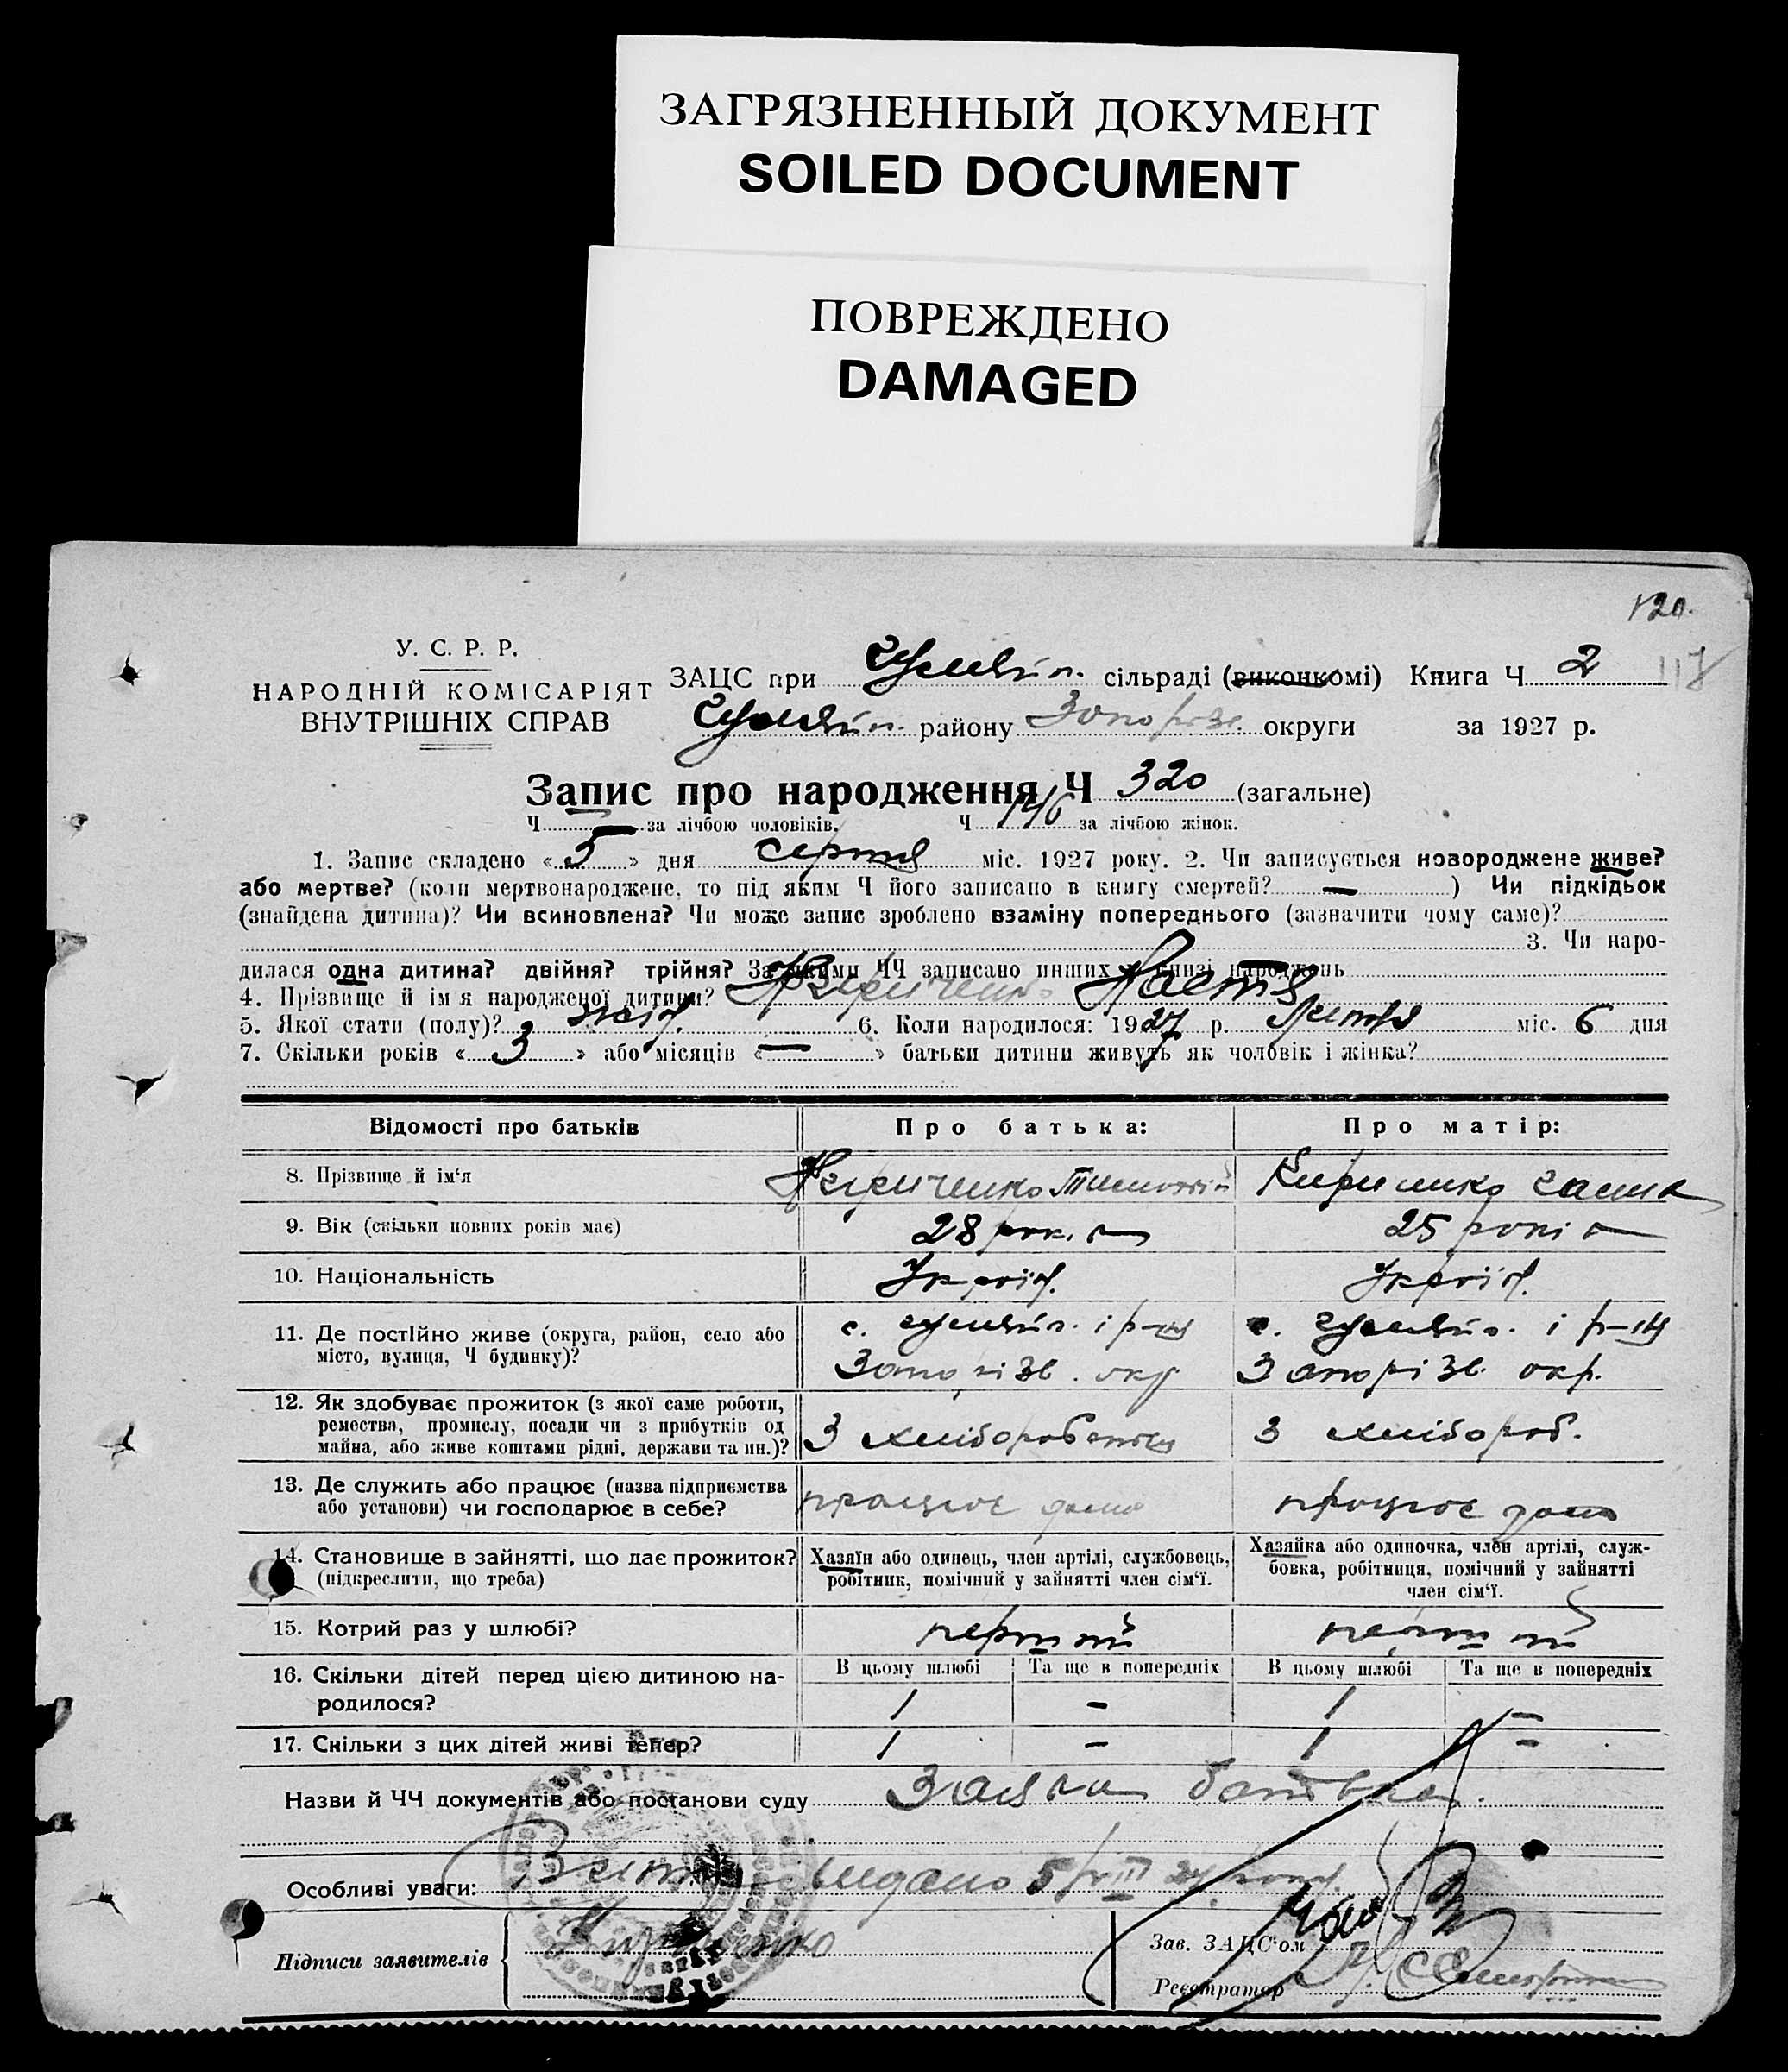 ЗАГРЯЗНЕННЫЙ ДОКУМЕНТ
SOILED DOCUMENT
ПОВРЕЖДЕНО
DAMAGED
120.
У. С. Р. Р.
НАРОДНІЙ КОМІСАРІЯТ
ВНУТРІШНІХ СПРАВ
ЗАЦС при сільраді (виконкомі) Книга Ч 2
району Запоріз. округи за 1927 р.
Запис про народження Ч 320 (загальне)
Ч — за лічбою чоловіків. Ч 146 за лічбою жінок.
1. Запис складено « 5 » дня серпня міс. 1927 року. 2. Чи записується новороджене живе?
або мертве? (коли мертвонароджене, то під яким Ч його записано в книгу смертей? — ) Чи підкідьок
(знайдена дитина)? Чи всиновлена? Чи може запис зроблено взаміну попереднього (зазначити чому саме)?
3. Чи наро-
дилася одна дитина? двійня? трійня? За якими ЧЧ записано инших у книзі народжень
4. Прізвище й ім'я народженої дитини? Кириченко Настя
5. Якої стати (полу)? жін. 6. Коли народилося: 1927 р. міс. 6 дня
7. Скільки років « 3 » або місяців « — » батьки дитини живуть як чоловік і жінка?
Відомості про батьків Про батька: Про матір:
8. Прізвище й ім'я Кириченко Тимофій Кириченко
9. Вік (скільки повних років має) 28 рок. 25 років
10. Національність Україн. Україн.
11. Де постійно живе (округа, район, село або
місто, вулиця, Ч будинку)?
с. і р-ну с. і р-ну
Запорізь. окр. Запорізь. окр.
12. Як здобуває прожиток (з якої саме роботи,
ремества, промислу, посади чи з прибутків од
майна, або живе коштами рідні, держави та ин.)?
З хліборобства З хлібороб.
13. Де служить або працює (назва підприємства
або установи) чи господарює в себе?
працює дома працює дома
14. Становище в зайнятті, що дає прожиток?
(підкреслити, що треба)
Хазяїн або одинець, член артілі, службовець,
робітник, помічний у зайнятті член сім'ї.
Хазяйка або одиночка, член артілі, служ-
бовка, робітниця, помічний у зайнятті
член сім'ї.
15. Котрий раз у шлюбі? перший перший
16. Скільки дітей перед цією дитиною на-
родилося?
В цьому шлюбі Та ще в попередніх В цьому шлюбі Та ще в попередніх
1 - 1 -
17. Скільки з цих дітей живі тепер? 1 - 1 -
Назви й ЧЧ документів або постанови суду Заява батька.
Особливі уваги: Витяг видано 5/VIII 27 року.
Підписи заявителів Кириченко
Зав. ЗАЦС'ом
Реєстратор